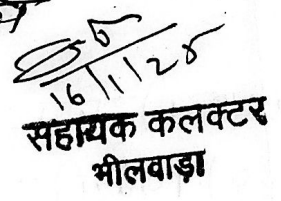 16/1/25
सहायक कलक्टर
भीलवाड़ा